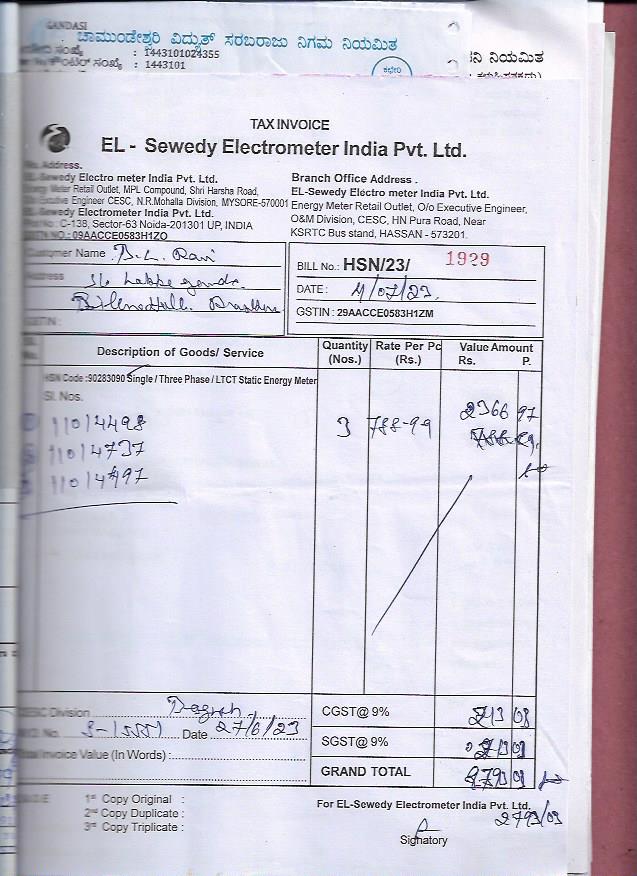 GANDASI
ಚಾಮುಂಡೇಶ್ವರಿ ವಿದ್ಯುತ್ ಸರಬರಾಜು ನಿಗಮ ನಿಯಮಿತ
ನಿ ನಿಯಮಿತ
ಸಂಖ್ಯೆ : 1443101024355
ಸಂಖ್ಯೆ : 1443101
ಕಛೇರಿ
TAX INVOICE
EL - Sewedy Electrometer India Pvt. Ltd.
Address.
EL-Sewedy Electro meter India Pvt. Ltd.
Energy Meter Retail Outlet, MPL Compound, Shri Harsha Road,
Executive Engineer CESC, N.R.Mohalla Division, MYSORE-570001
EL-Sewedy Electrometer India Pvt. Ltd.
C-138, Sector-63 Noida-201301 UP, INDIA
GSTN NO.: 09AACCE0583H1ZO
Branch Office Address .
EL-Sewedy Electro meter India Pvt. Ltd.
Energy Meter Retail Outlet, O/o Executive Engineer,
O&M Division, CESC, HN Pura Road, Near
KSRTC Bus stand, HASSAN - 573201.
Customer Name B.L. Ravi
Address
GSTIN :
BILL No.: HSN/23/ 1929
DATE : 4/07/23.
GSTIN : 29AACCE0583H1ZM
Sl. No. Description of Goods/ Service Quantity (Nos.) Rate Per Pc (Rs.) Value Amount Rs. P.
HSN Code :90283090 Single / Three Phase / LTCT Static Energy Meter
Sl. Nos.
11014498 3 788-99 2366 97
11014737
11014497
CESC Division
Date 27/6/23
Total Invoice Value (In Words) :
CGST@ 9% 213 03
SGST@ 9% 213 03
GRAND TOTAL 2793 03
1st Copy Original :
2nd Copy Duplicate :
3rd Copy Triplicate :
For EL-Sewedy Electrometer India Pvt. Ltd.
2793/03
Signatory